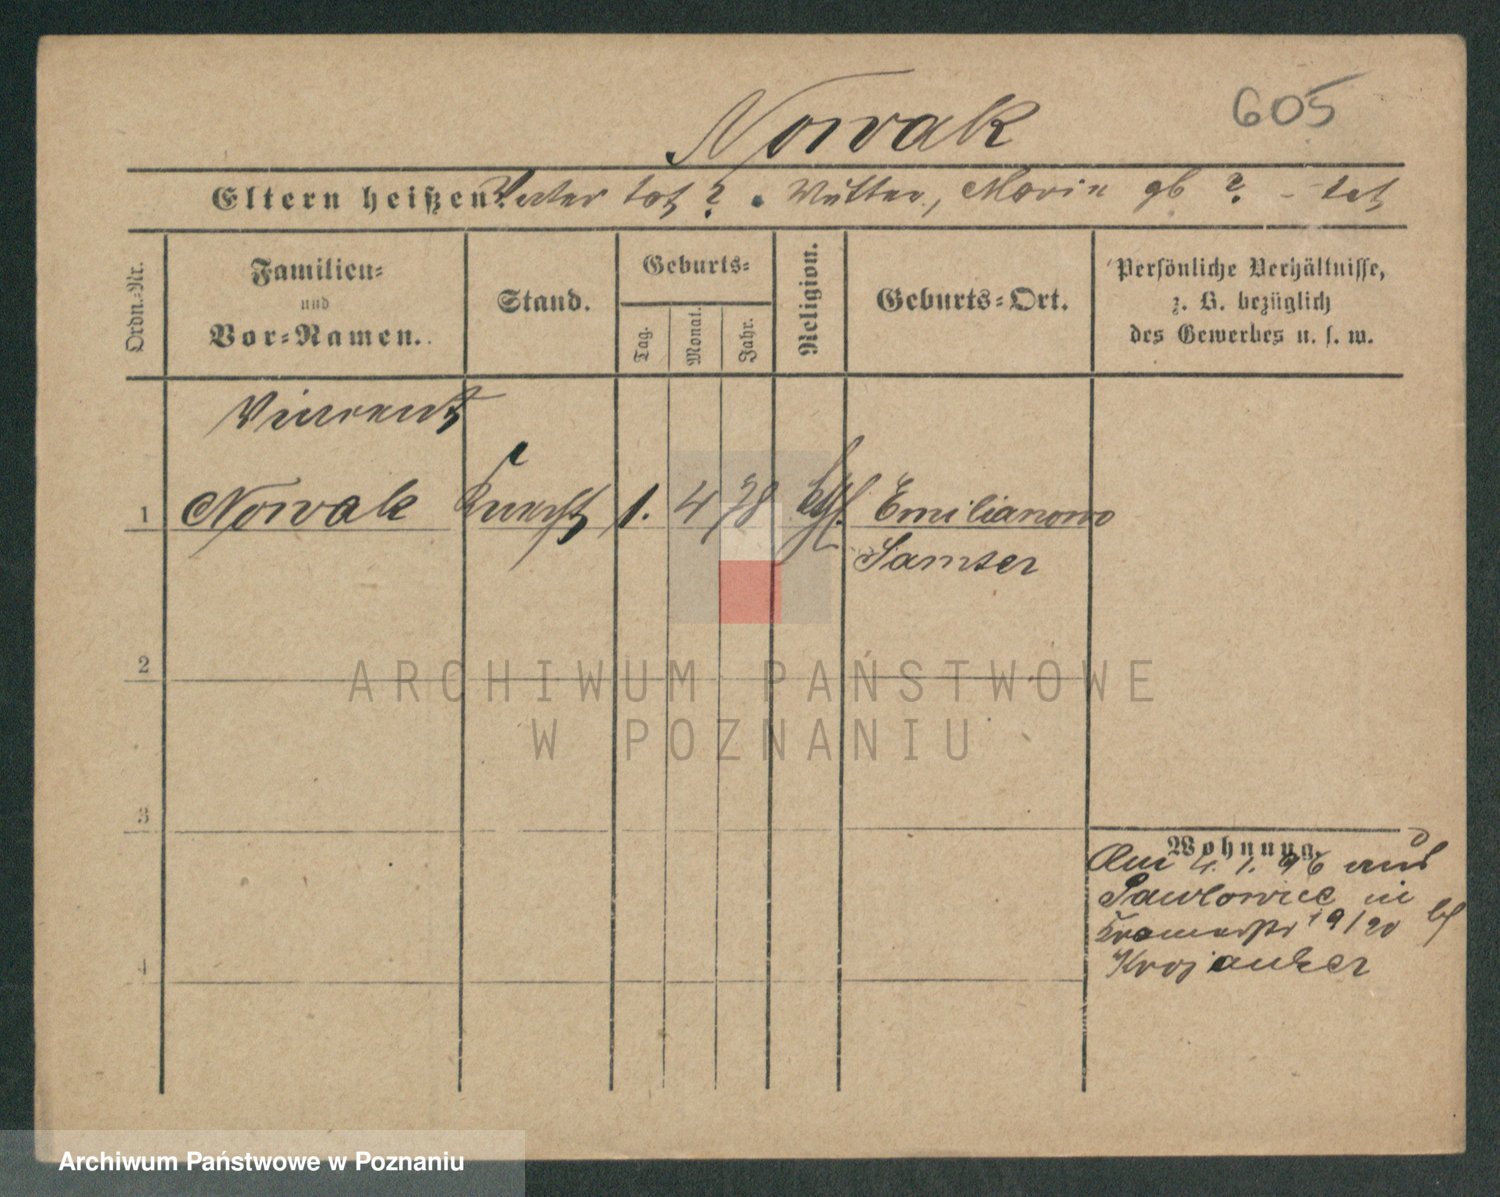 Nowak
605
Eltern heißen: Vater tot ? Mutter, Maria gb ? - tot
Ordn.-Nr.
Familien-
und
Vor-Namen.
Stand.
Geburts-
Tag.
Monat.
Jahr.
Religion.
Geburts-Ort.
Persönliche Verhältnisse,
z. B. bezüglich
des Gewerbes u. s. w.
Vincent
1 Nowak Knecht 1. 4 78 Emilianowo
Samter
2
ARCHIWUM PAŃSTWOWE
W POZNANIU
3
Wohnung.
Am 4. 1. 96 aus
Pawlowice in
19/20 bei
Krojanker
4
Archiwum Państwowe w Poznaniu